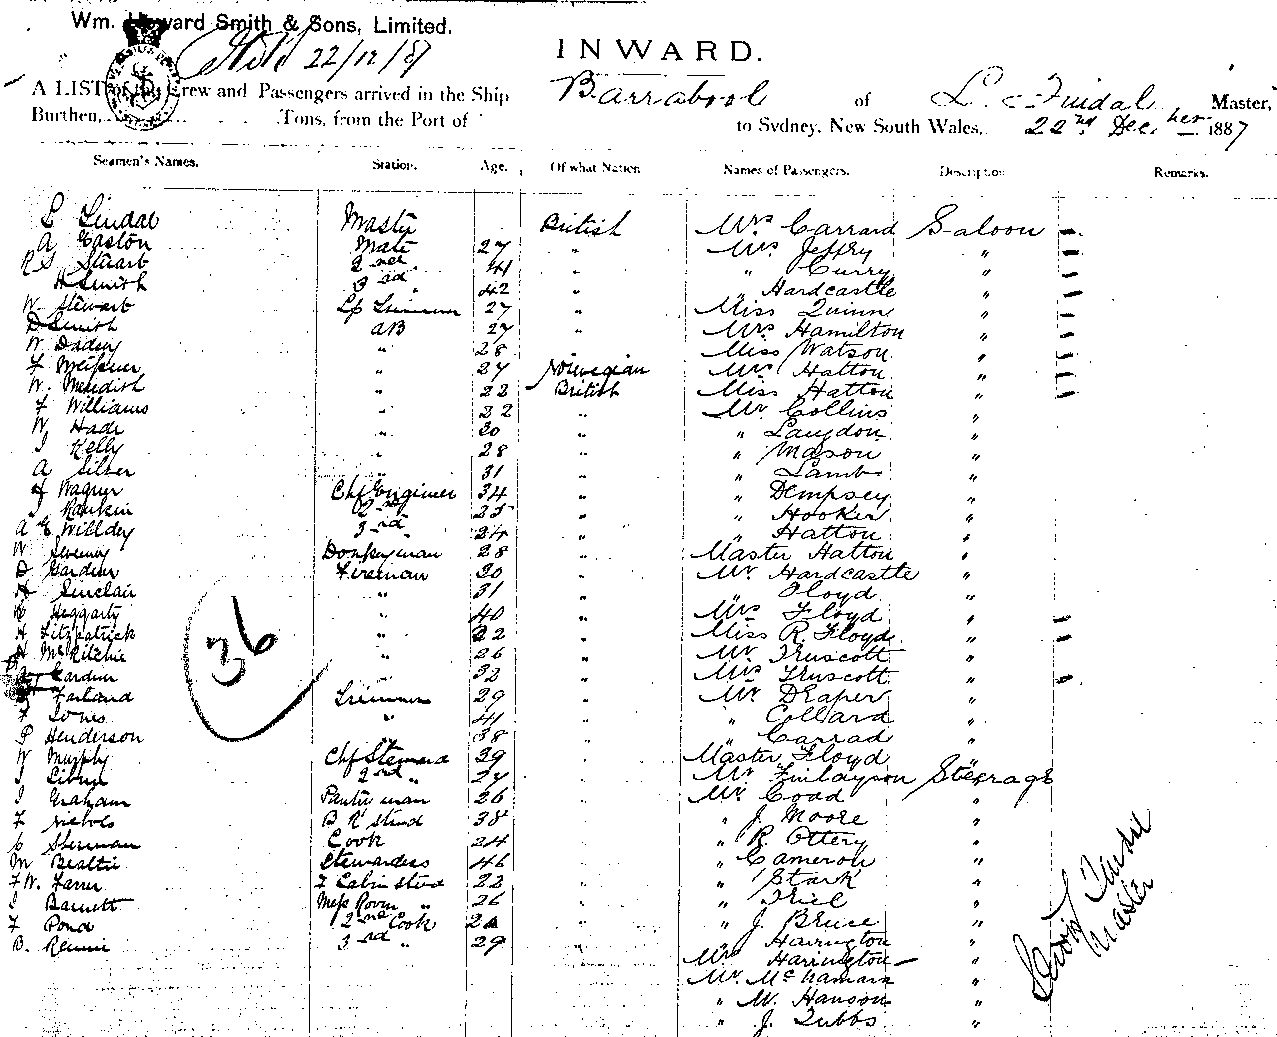 Wm. Howard Smith & Sons, Limited.
22/12/87
INWARD.
A LIST of the Crew and Passengers arrived in the Ship Barrabool of L. Lindal Master,
Burthen, Tons, from the Port of to Sydney, New South Wales, 22nd December 1887
Seamen's Names. Station. Age. Of what Nation Names of Passengers. Description Remarks.
L Lindal Master British Mrs Carrard Saloon
A Easton Mate 27 " Mrs Jeffry "
R S Stuart 2nd " 41 " " Curry "
H Smith 3rd " 42 " " Hardcastle "
W. Stewart Lp Trimmer 27 " Miss Quinn "
D Smith AB 27 " Mrs Hamilton "
W Dadey " 28 " Miss Watson "
F " 27 Norwegian Mrs Hatton "
W. Meredith " 22 British Miss Hatton "
F Williams " 22 " Mr Collins "
W Hade " 30 " " Langdon "
J Kelly " 28 " " Mason "
A Silver " 31 " " Lamb "
Wagner Chf Engineer 34 " " Dempsey "
J Rankin 2nd " 25 " " Hooker "
A E Willdey 3rd " 24 " " Hatton "
W Donkeyman 28 " Master Hatton "
D Gardner Fireman 30 " Mr Hardcastle "
Sinclair " 31 " " Floyd "
Heggarty " 40 " Mrs Floyd "
H Fitzpatrick " 22 " Miss R. Floyd "
McRitchie " 26 " Mr Truscott "
Gardner " 32 " Mrs Truscott "
Farland Trimmer 29 " Mr Draper "
F Jones " 41 " " Collard "
P Henderson " 38 " " Carrad "
W Murphy Chf Steward 39 " Master Floyd "
J 2nd " 27 " Mr Finlayson Steerage
J Graham Pantryman 26 " Mr Coad "
F Nichols B R Stwd 38 " " J. Moore "
C Sherman Cook 24 " " R. Ottery "
M Beattie Stewardess 46 " " Cameron "
F W. Farrer F Cabin Stwd 22 " " Stark "
J Barnett Mess Room " 26 " " Friel "
F Pond 2nd Cook " " J. Bruce "
B. Rennie 3rd " 29 " " Harrington "
Mrs Harrington "
Mr. McNamara "
" W. Hanson "
" J. Tubbs "
36
Lindal
Master